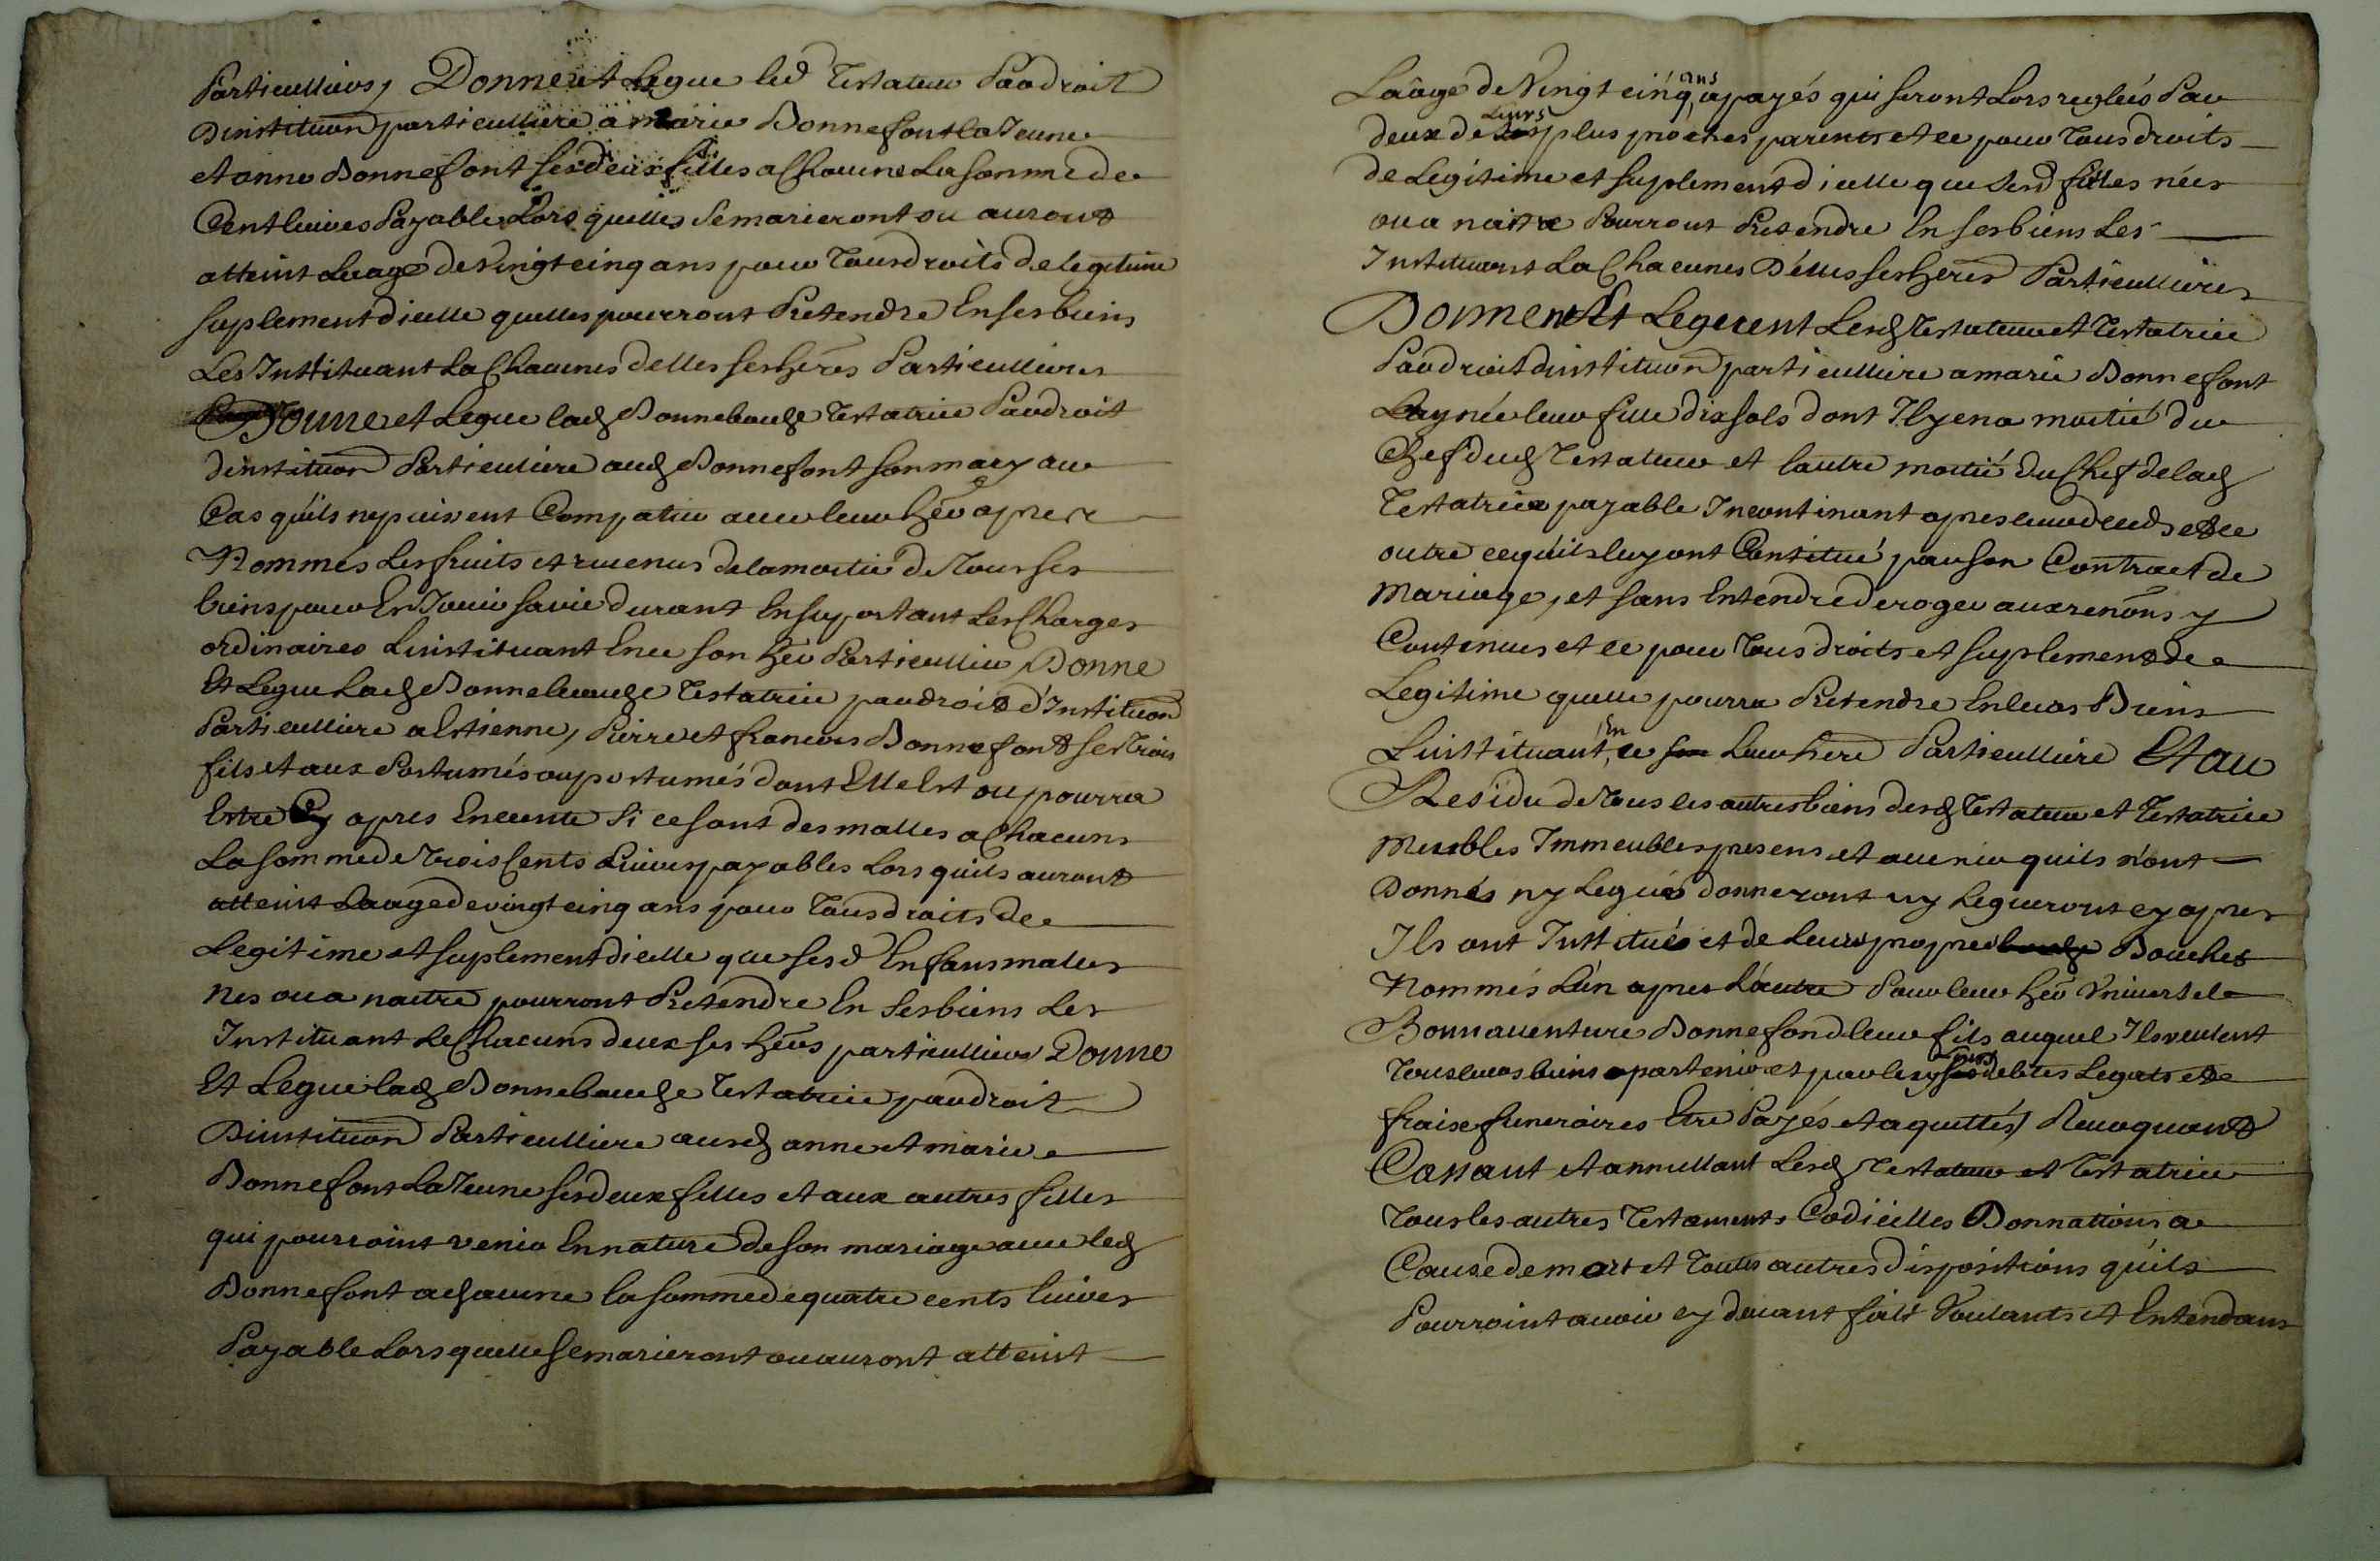 particulliers, Donne et Legue led testateur par droit
dinstituōn particulliere a marie Bonnefont la Jeune
et anne Bonnefont ses deux filles a Chacune La somme de
Cent livres payable Lors quelles se marieront ou auront
atteint Leage de vingt cinq ans pour tous droits de legitime
suplement dicelle quelles pourront Pretendre En ses biens
Les Instituant La Chacunes delles ses heres Particullieres
Donne et Legue lad Bonnebouche testatrice Par droit
dinstituōn Particuliere aud Bonnefont son mary au
Cas quils ne puissent Compatir avec leur her apres
Nommés Les fruits et revenus de la moitie de tous ses
biens pour En Jouir sa vie durant En suportant Les Charges
ordinaires Linstituant En ce son her Particullier Donne
Et Legue Lad Bonnebouche testatrice par droit d'Instituōn
Particulliere a Estienne, Pierre et francois Bonnefont ses trois
fils et aux Postumés ou postumés dont Elle Est ou pourra
Estre Cy apres Enceinte Si ce sont des malles a Chacuns
La somme de trois Cents Livres payables Lors quils auront
atteint Laage de vingt cinq ans pour tous droits de
Legitime et suplement dicelle que sesd Enfans malles
nes ou a naitre pourront Pretendre En ses biens Les
Instituant Le Chacuns deux ses hers particulliers Donne
Et Legue lad Bonnebouche testatrice par droit
Dinstituōn Particulliere ausd anne et marie
Bonnefont La Jeune ses deux filles et aux autres filles
qui pourroint venir En nature de son mariage avec led
Bonnefont a chacune la somme de quatre cents livres
Payable Lors quelle se marieront ou auront atteint
Laâge de Vingt cinq ans a payés qui seront Lors reglées Par
deux de Leurs plus proches parents et ce pour tous droits
de Legitime et suplement dicelle que sesd filles nées
ou a naitre Pourront Pretendre En ses biens Les
Instituant La Chacunes D'elles ses heres Particullieres
Donnent Et Leguent Lesd testateur et testatrice
Par droit dinstituōn particulliere a marie Bonnefont
Laynée leur fille dix sols dont Il y en a moitié du
Chef dud testateur et lautre moitié du Chef de lad
testatrice payable Incontinant apres leur deceds et ce
outre ce quils luy ont Constitué par son Contract de
Mariage, et sans Entendre deroger aux renōns y
Contenues et ce pour tous droits et suplement de
Legitime quelle pourra Pretendre En leurs Biens
Linstituant En ce son leur here Particulliere Et au
Residu de tous les autres biens desd testateur et testatrice
Meubles Immeubles presens et avenir quils n'ont
Donnés ny Legués donneront ny Legueront cy apres
Ils ont Institués et de Leurs propres Bouches
Nommés L'un apres L'autre Pour leur her Universel
Bonnaventure Bonnefond leur fils auquel Ils veulent
tous leurs biens apartenir et par luy Leurs debtes Legats et
fraix funeraires Etre Payés et aquittés, Revoquant
Cassant et annullant Lesd testateur et testatrice
tous les autres testaments Codicilles Donnations a
Cause de mort et toutes autres dispositions quils
Pourroint avoir cy devant fait Voulants et Entendans